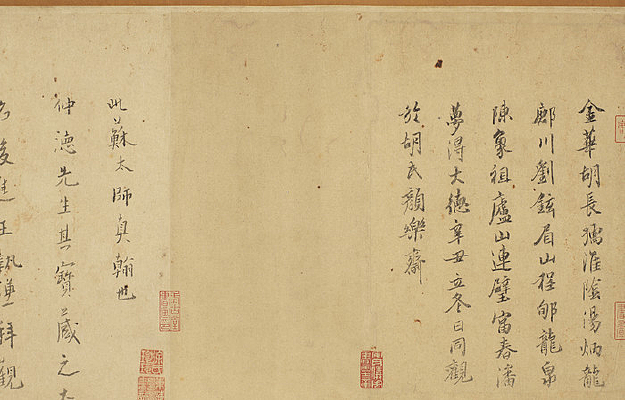 金華胡長孺淮陰湯炳龍
鄜川劉鉉眉山程郇龍泉
陳象祖廬山連璧富春潘
夢得大德辛丑立冬日同觀
於胡氏顏樂齋
此蘇太師真翰也
仲德先生其寶藏之大
名後進王執謙拜觀